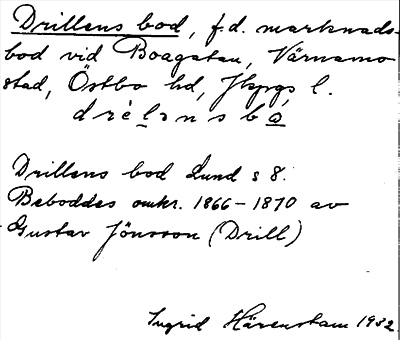 Drillens bod, f.d. marknads-
bod vid Boagatan, Värnamo
stad, Östbo hd, Jkpgs l.
drèlənsbo
Drillens bod Lund s 8.
Beboddes omkr. 1866-1870 av
Gustav Jönsson (Drill)
Ingrid Härenstam 1932.